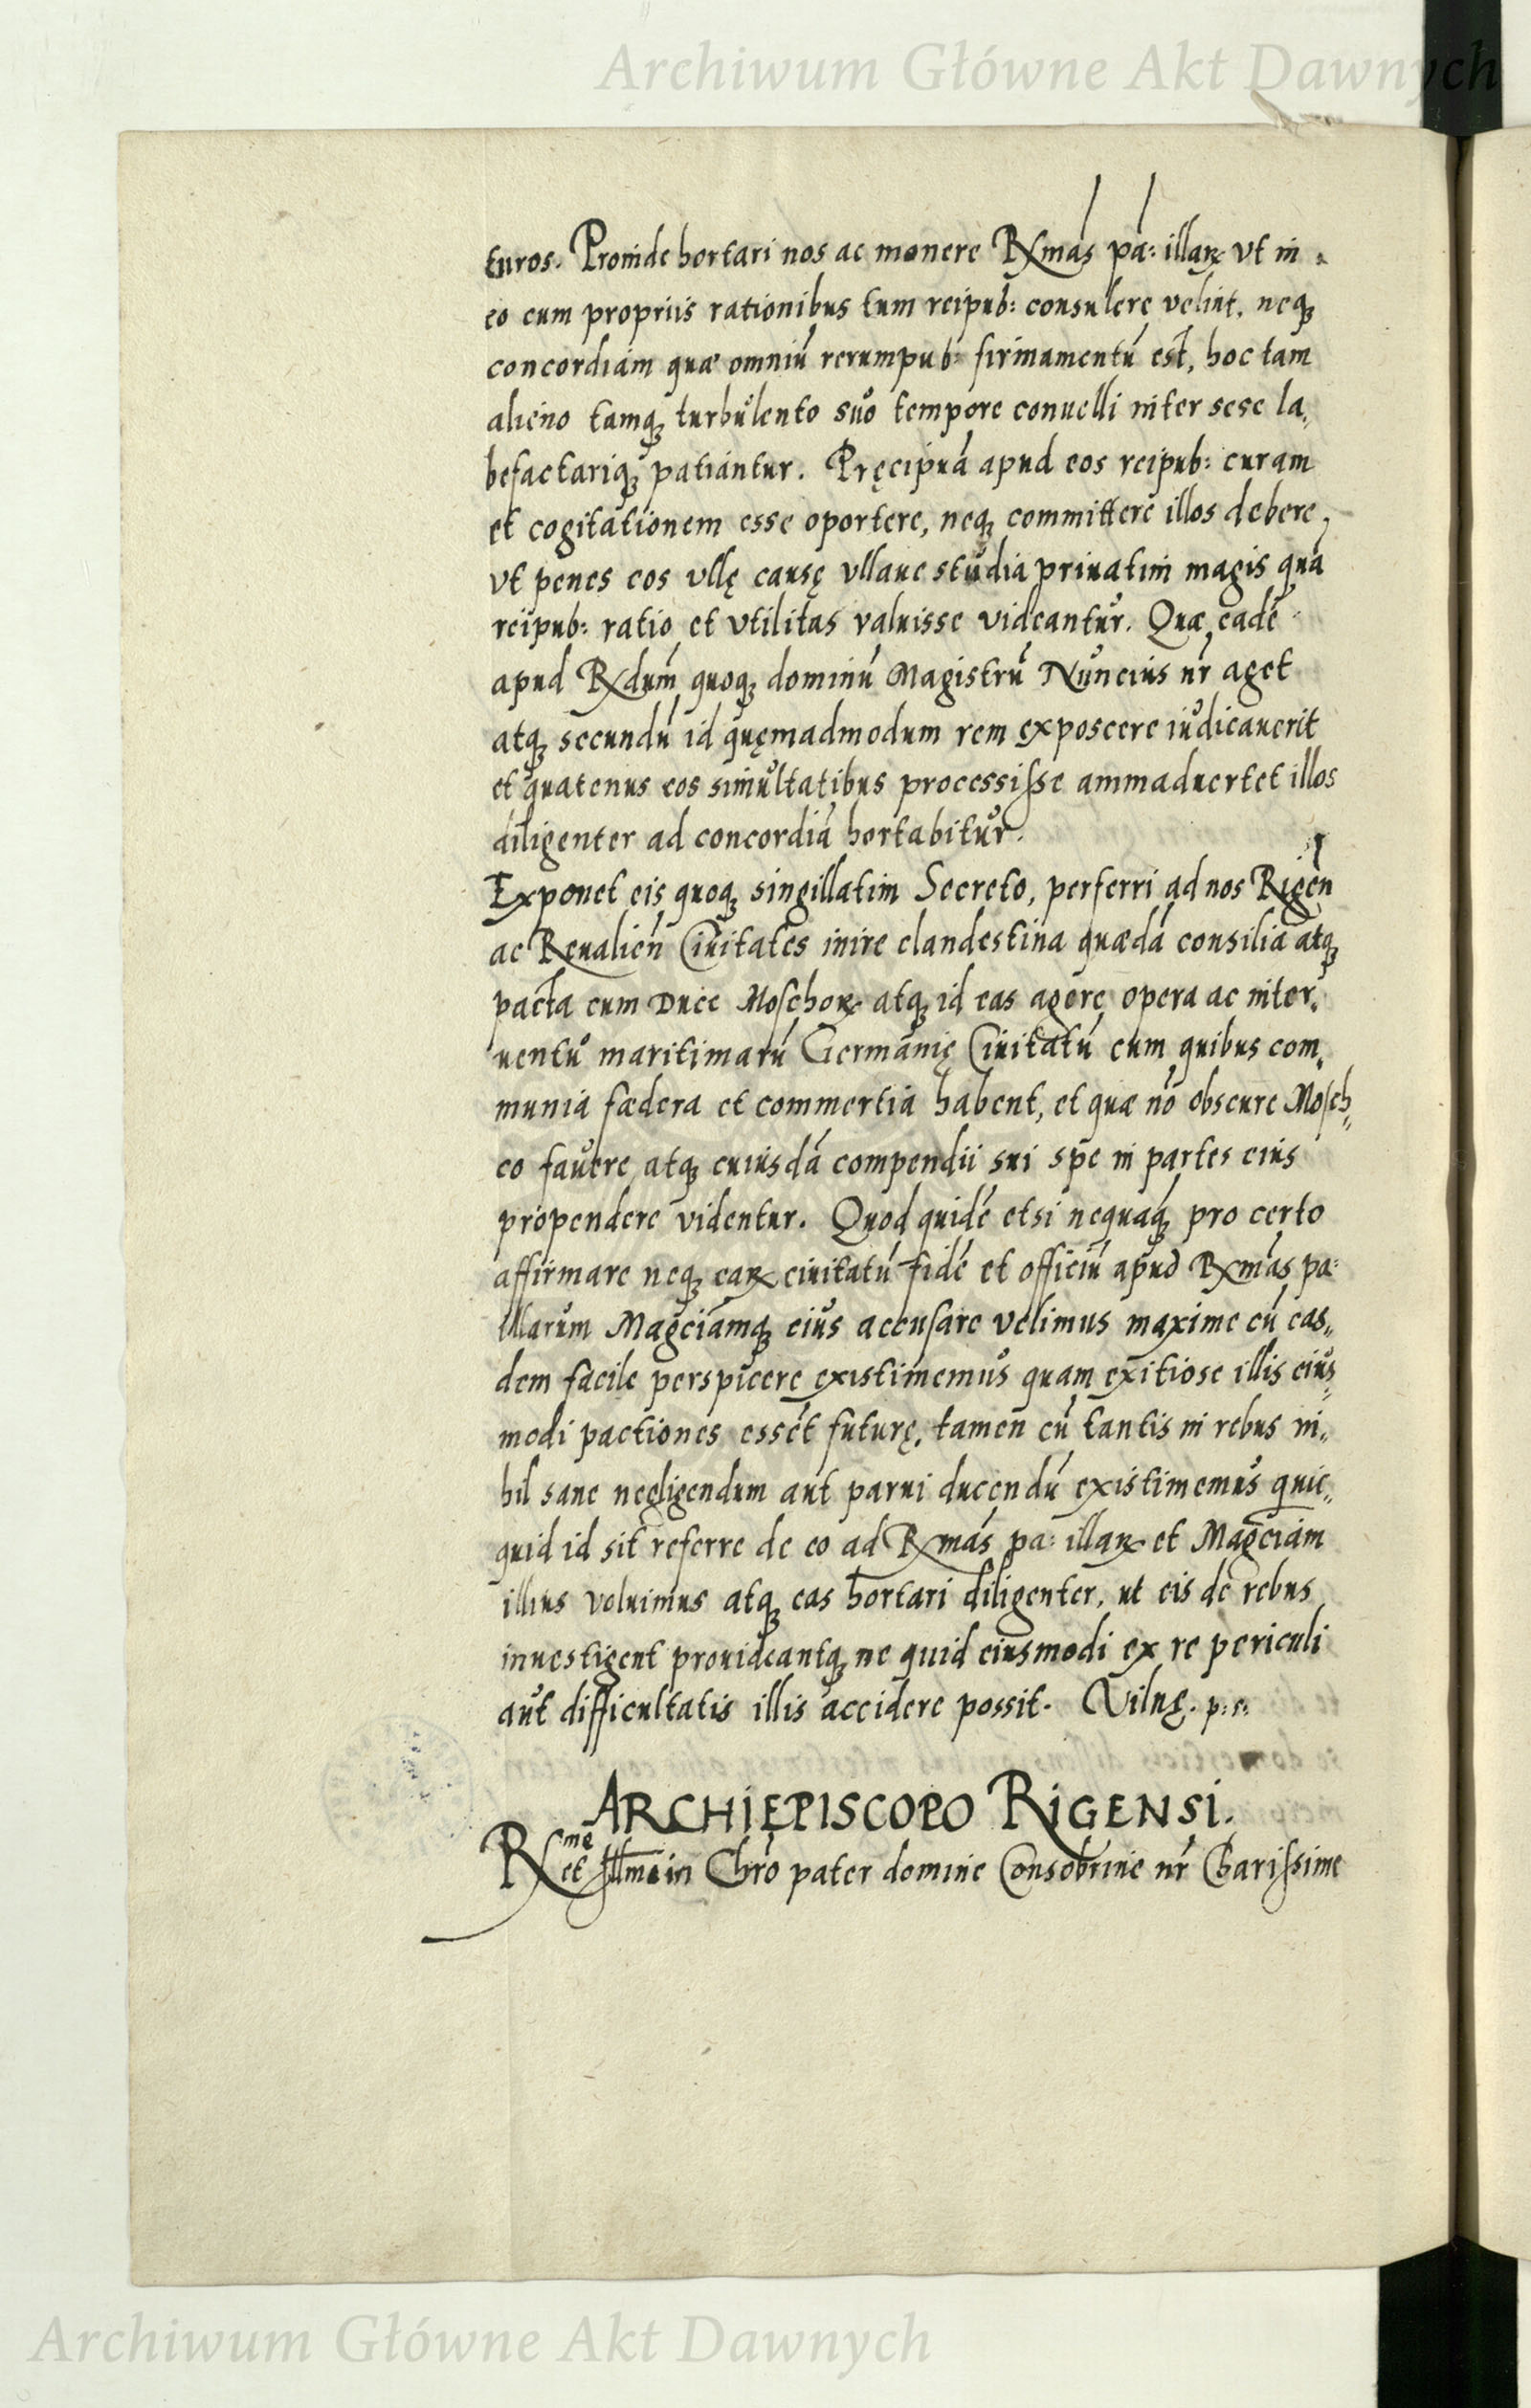 Archiwum Główne Akt Dawnych
turos. Proinde hortari nos ac monere Rxmas pa: illaꝝ vt in
eo cum propriis rationibus tum reipub: consulere velint, neqꝫ
concordiam quæ omniū rerumpub: firmamentū est, hoc tam
alieno tamqꝫ turbulento suo tempore conuelli inter sese la,,
befactariqꝫ patiantur. Pręcipuā apud eos reipub: curam
et cogitationem esse oportere, neqꝫ committere illos debere,
vt penes eos vllę causę vllaue studia priuatim magis quā
reipub: ratio et vtilitas valuisse videantur. Quæ eadē
apud Rxdum quoqꝫ dominū Magistrū Nuncius nr̄ aget
atqꝫ secundū id quęmadmodum rem exposcere iudicauerit
et quatenus eos simultatibus processisse animaduertet illos
diligenter ad concordiā hortabitur.
Exponet eis quoqꝫ singillatim Secreto, perferri ad nos Rigeń
ac Reualień Ciuitates inire clandestina quædā consilia atqꝫ
pacta cum Duce Moschoꝝ atqꝫ id eas agere opera ac inter,,
uentu maritimarū Germanię Ciuitatū cum quibus com,,
munia fœdera et commertia habent, et quæ nō obscure Mosch,,
co fauere atqꝫ cuiusdā compendii sui spe in partes eius
propendere videntur. Quod quidē etsi nequaqꝫ pro certo
affirmare neqꝫ eaꝝ ciuitatū fidē et officiū apud Rxmas pa:
illarum Magciamqꝫ eius accusare velimus maxime cū eas,,
dem facile perspicere existimemus quam exitiose illis eius,,
modi pactiones essēt futurę, tamen cū tantis in rebus ni,,
hil sane negligendum aut parui ducendū existimemus quic,,
quid id sit referre de eo ad Rxmas pa: illaꝝ et Magciam
illius voluimus atqꝫ eas hortari diligenter, ut eis de rebus
inuestigent prouideantqꝫ ne quid eiusmodi ex re periculi
aut difficultatis illis accidere possit. Vilnę. p: r:
ARCHIĘPISCOPO RIGENSI.
Rxmę et Illme in Chrō pater domine Consobrine nr̄ Charissime
Archiwum Główne Akt Dawnych